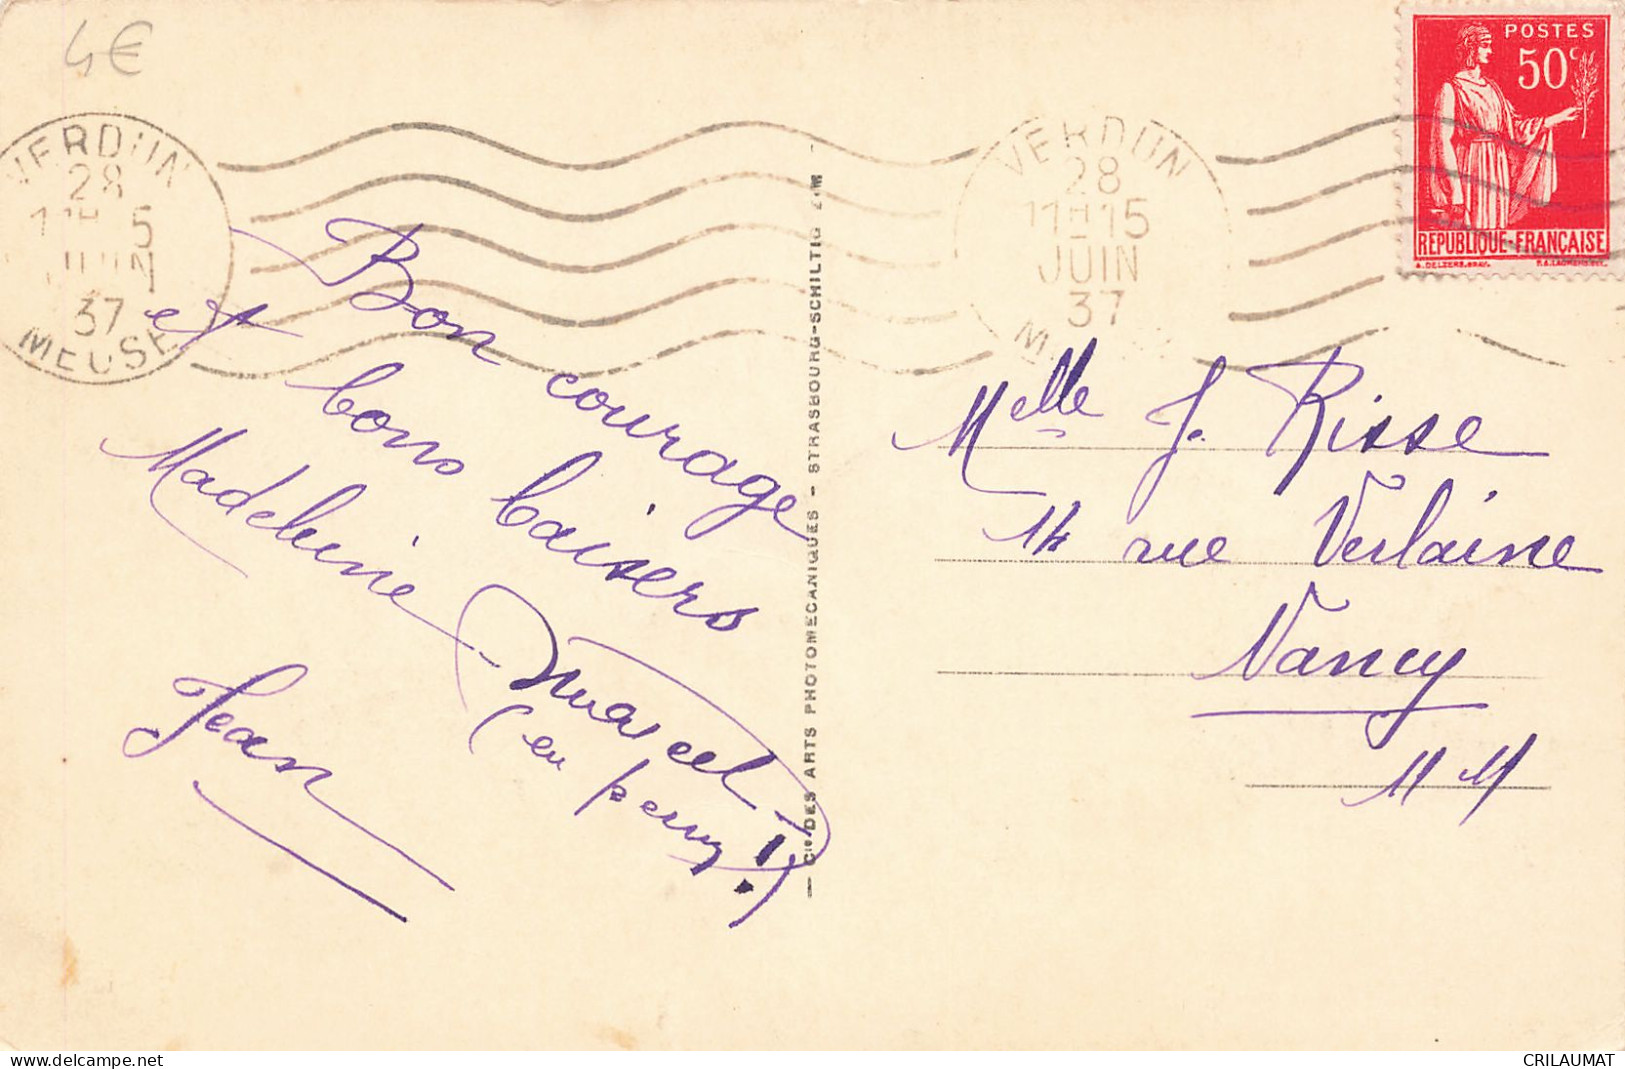 4€
VERDUN
28
11H15
JUIN
37
MEUSE
VERDUN
28
11H15
JUIN
37
POSTES
50c
REPUBLIQUE-FRANÇAISE
Bon courage
et bons baisers
Madeleine Marcel
(en perm!)
Jean
— Cie DES ARTS PHOTOMECANIQUES - STRASBOURG-SCHILTIG
Melle J. Risse
14 rue Verlaine
Nancy
M M
www.delcampe.net
CRILAUMAT